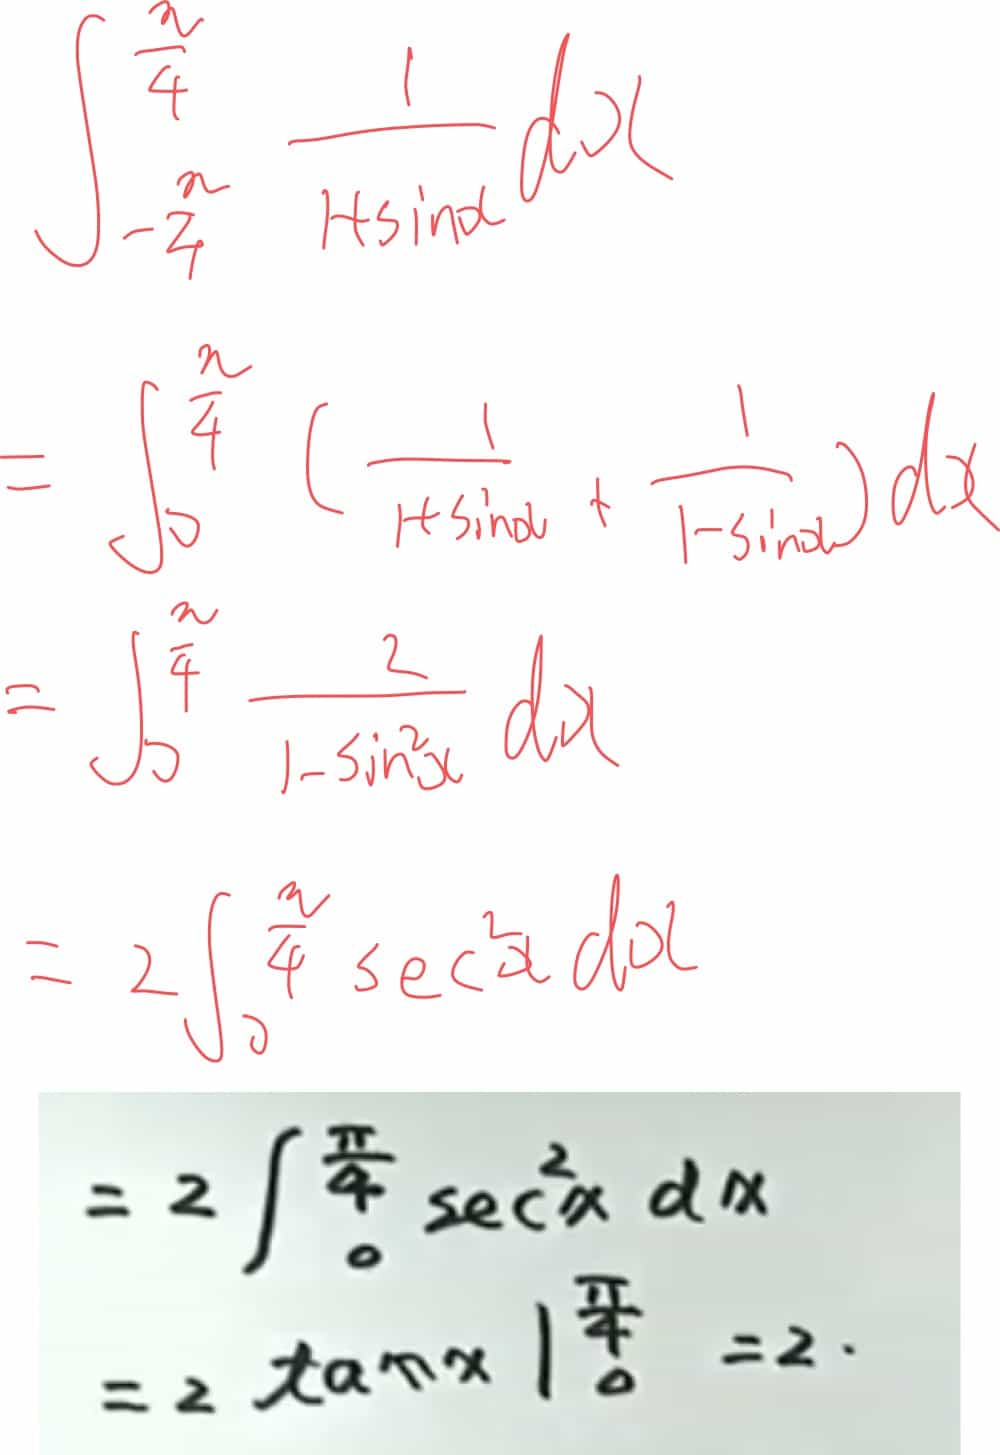 ∫_{-π/4}^{π/4} 1/(1+sinx) dx
= ∫_0^{π/4} (1/(1+sinx) + 1/(1-sinx)) dx
= ∫_0^{π/4} 2/(1-sin²x) dx
= 2∫_0^{π/4} sec²x dx
= 2∫_0^{π/4} sec²x dx
= 2 tanx |_0^{π/4} = 2.